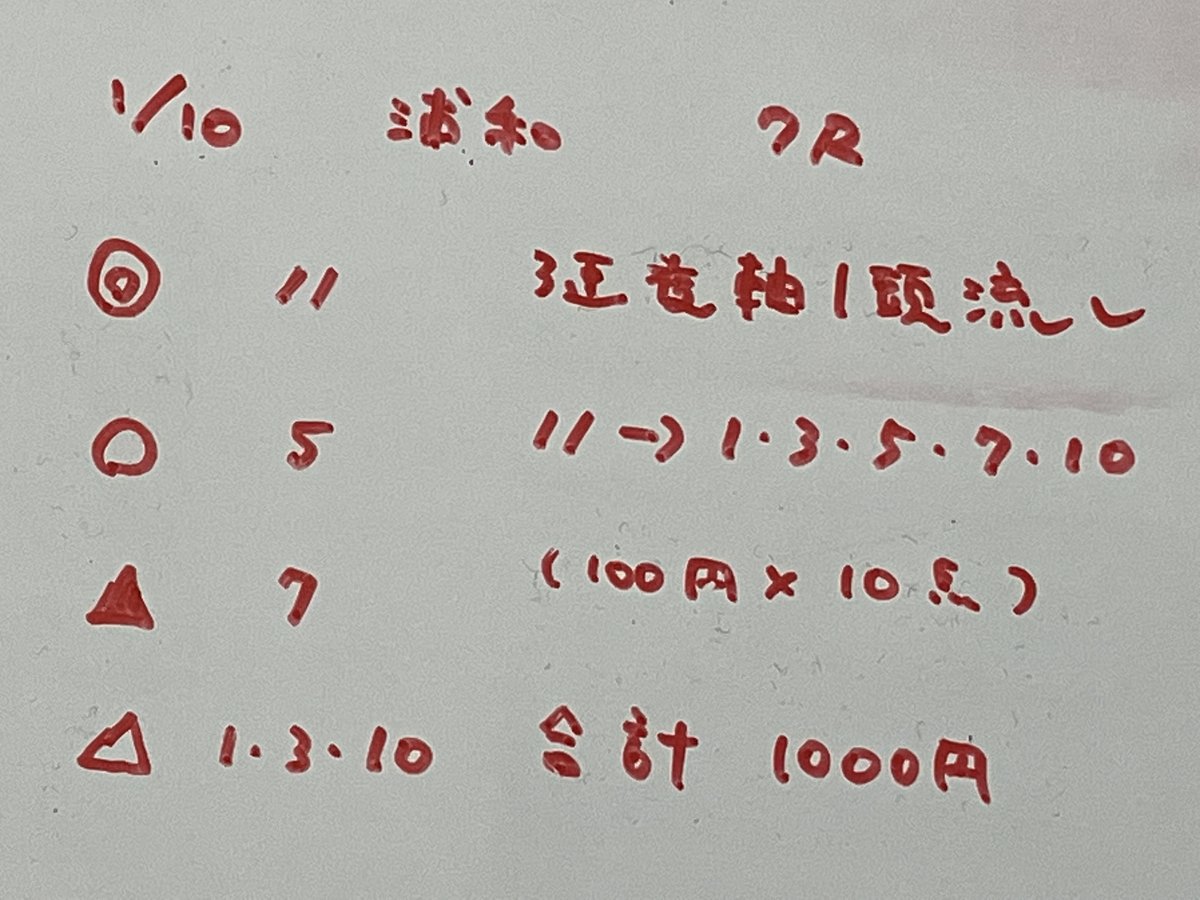 1/10 浦和 7R
◎ 11 3連複軸1頭流し
○ 5 11→1・3・5・7・10
▲ 7 (100円×10点)
△ 1・3・10 合計 1000円